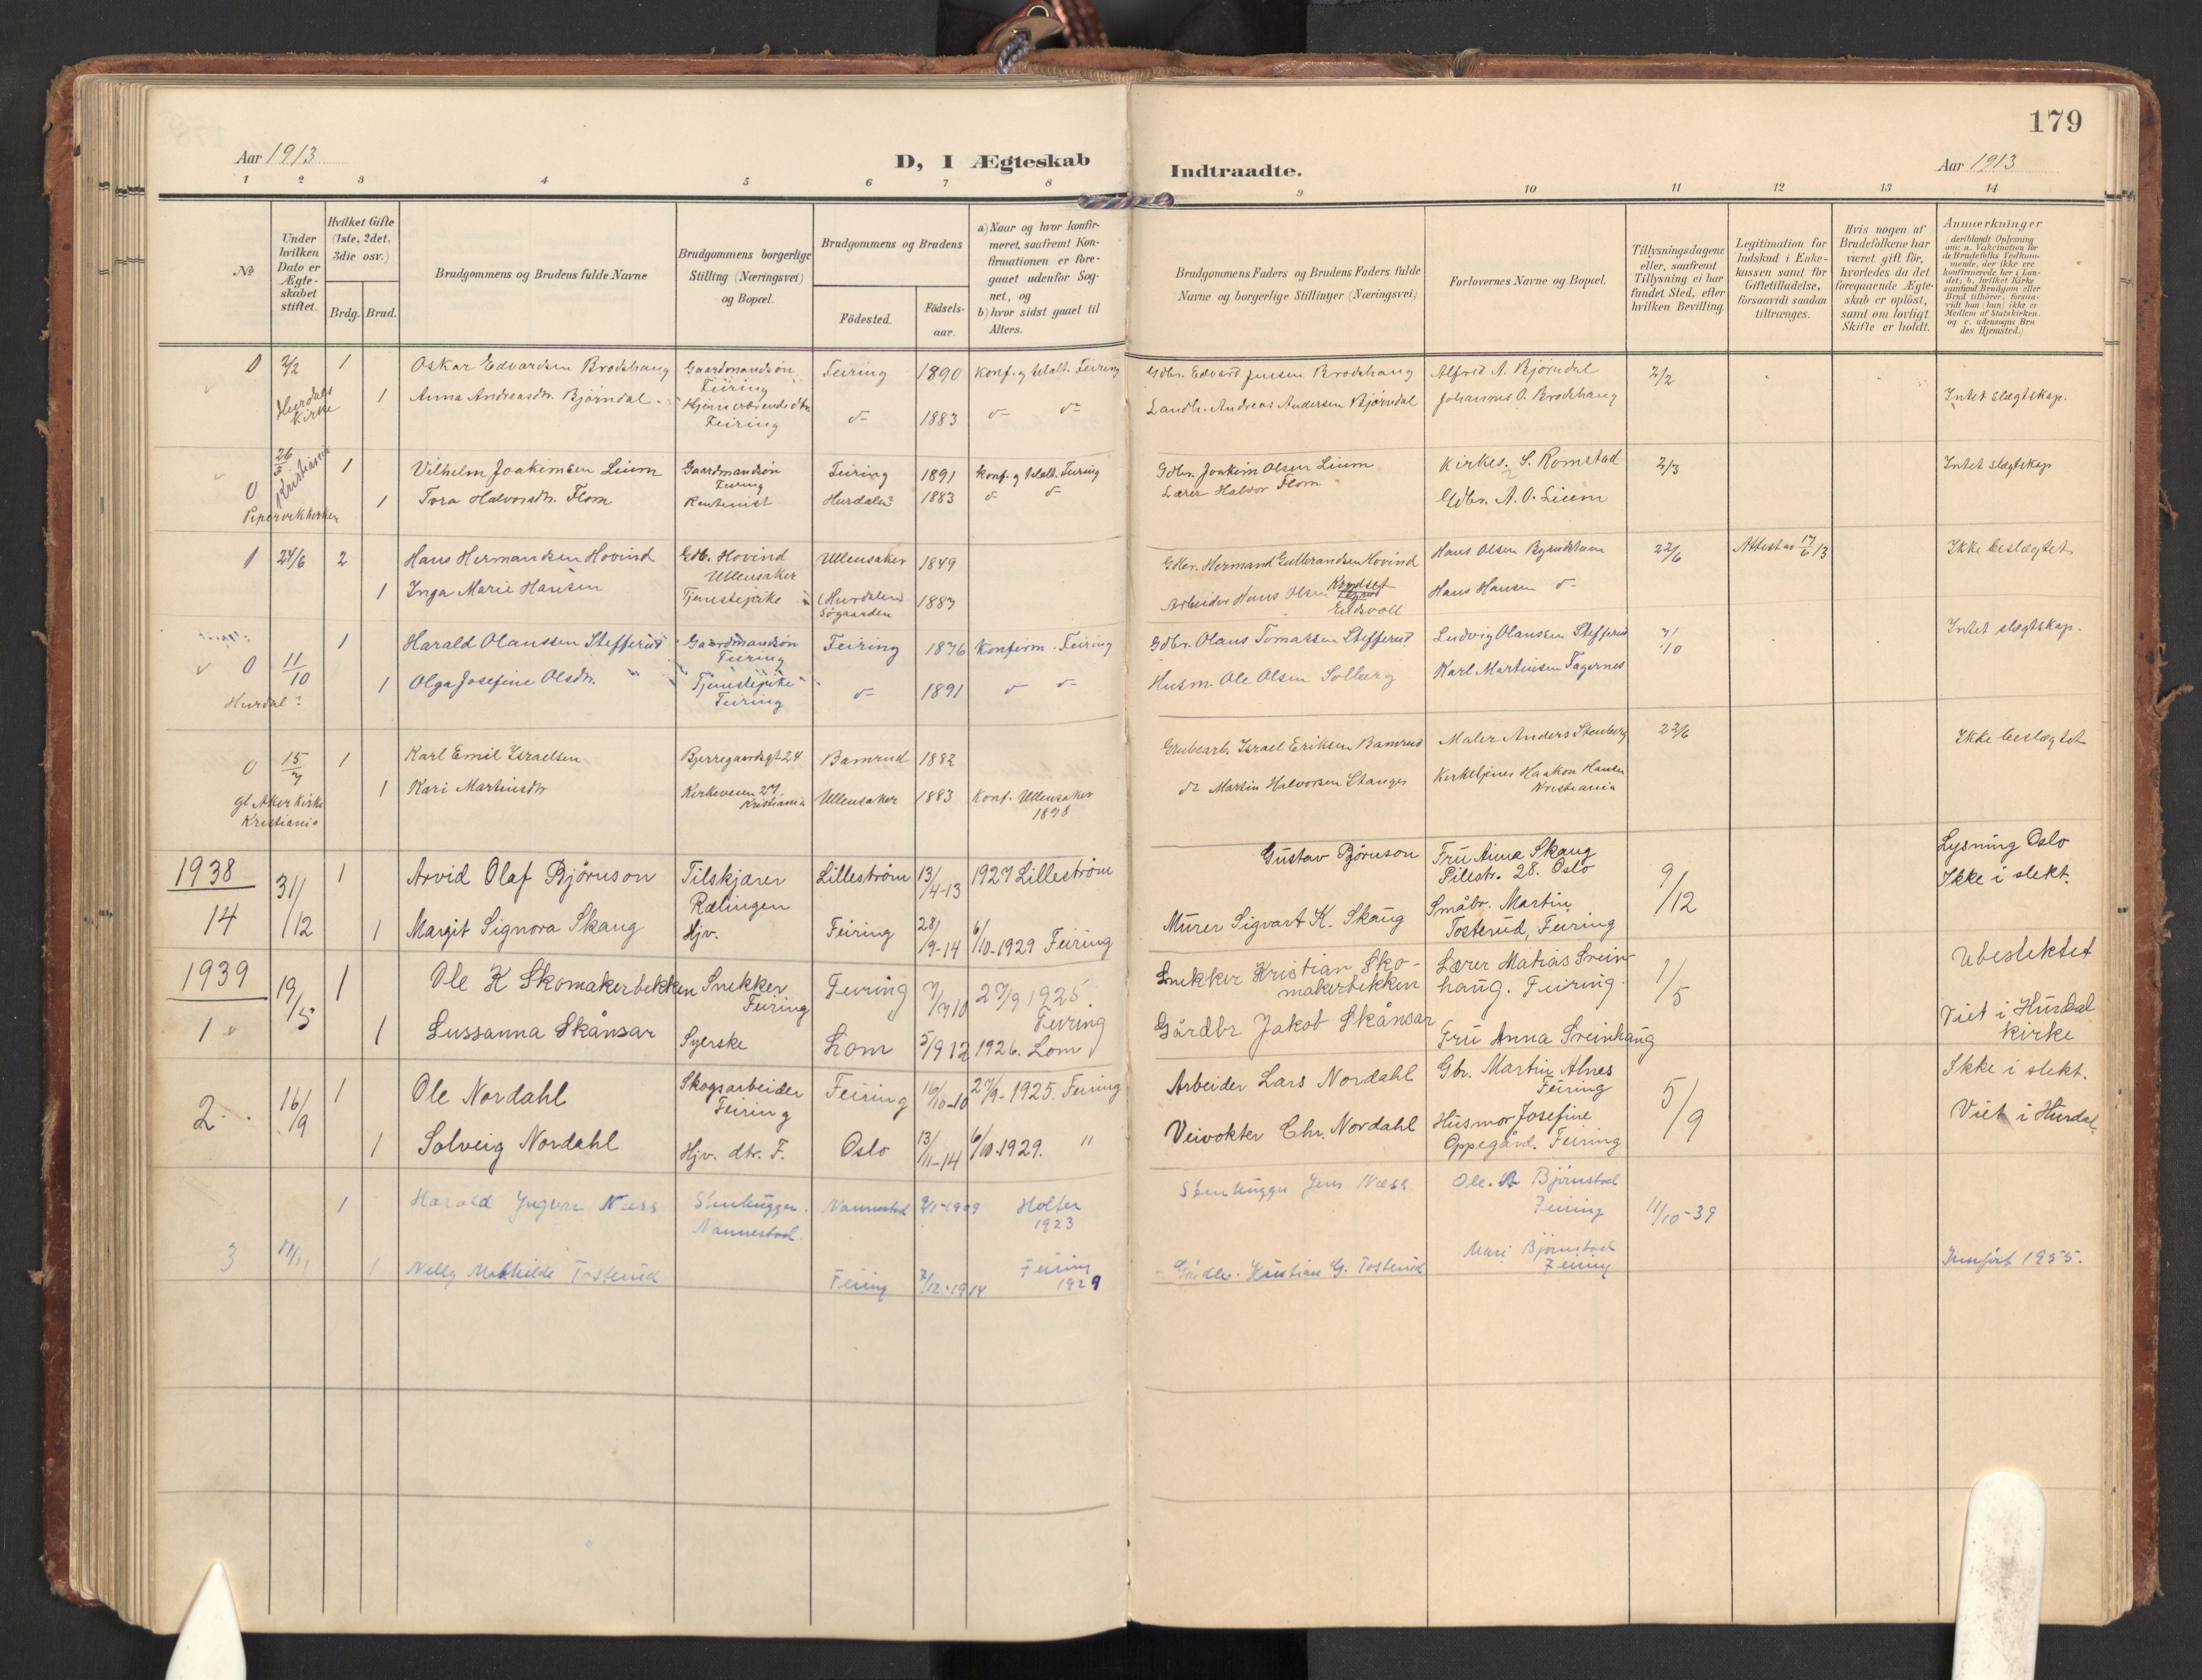 179
Aar 1913
D, I Ægteskab
Indtraadte.
Aar 1913
1 2 3 4 5 6 7 8
9 10 11 12 13 14
No
Under hvilken Dato er Ægte-skabet stiftet.
Hvilket Gifte (1ste, 2det, 3die osv.)
Brdg. Brud.
Brudgommens og Brudens fulde Navne
Brudgommens borgerlige Stilling (Næringsvei) og Bopæl.
Brudgommens og Brudens
Födested.
Födsels-aar.
a) Naar og hvor konfir-meret, saafremt Kon-firmationen er fore-gaaet udenfor Sog-net, og
b) hvor sidst gaaet til Alters.
Brudgommens Faders og Brudens Faders fulde Navne og borgerlige Stillinger (Næringsvei)
Forlovernes Navne og Bopæl.
Tillysningsdagene eller, saafremt Tillysning ei har fundet Sted, efter hvilken Bevilling.
Legitimation for Indskud i Enke-kassen samt for Giftetilladelse, forsaavidt saadan tiltrænges.
Hvis nogen af Brudefolkene har været gift för, hvorledes da det foregaaende Ægte-skab er oplöst, samt om lovligt Skifte er holdt.
Anmærkninger
(deriblandt Oplysning om: a. Vakcination for de Brudefolks Vedkom-mende, der ikke ere konfirmerede her i Lan-det; b. hvilket Kirke-samfund Brudgom eller Brud tilhörer, forsaa-vidt han (hun) ikke er Medlem af Statskirken. og c. udensogns Bru-des Hjemsted.)
0 2/2 1 Oskar Edvardsen Brodshaug Gaardmandsön Feiring Feiring 1890 Konf. og tilalt. Feiring Gdbr. Edvard Jensen Brodshaug Alfred A. Bjørndal 2/2
Hurdals Kirke 1 Anna Andreasdtr. Bjørndal Hjemværende dtr. Feiring 1883 Landh. Andreas Andersen Bjørndal Johannes O. Brodshaug Intet slægtskap.
0 26/3 Kristiania 1 Vilhelm Joakimsen Lium Gaardmandsön Feiring Feiring 1891 Konf. og tilalt. Feiring Gdbr. Joakim Olsen Lium Kirkes. S. Romstad 2/3 Intet slægtskap
Pipervikkirken 1 Tora Halvorsdtr. Flom Rentenist Hurdalen 1883 Lærer Halvor Flom Gdbr. A. O. Lium
1 24/6 2 Hans Hermandsen Hovind Gdb. Hovind Ullensaker Ullensaker 1849 Gdbr. Hermand Gulbrandsen Hovind Hans Olsen 22/6 Attest av 17/6 13 Ikke beslægtet
1 Inga Marie Hansen Tjenestepike (Hurdalen) Søgaarden 1887 Arbeider Hans Olsen Eidsvoll Hans Hansen
0 11/10 1 Harald Olaussen Stefferud Gaardmandsön Feiring Feiring 1876 Konfirm. Feiring Gdbr. Olaus Tomassen Stefferud Ludvig Olaussen Stefferud Intet slægtskap.
Hurdal? 1 Olga Josefine Olsdtr. Tjenestepike Feiring 1891 Husm. Ole Olsen Solberg Karl Martinsen Fagernes
0 15/7 1 Karl Emil Israelsen Bjerregaardsgt 24 Bamrud 1882 Grubearb. Israel Eriksen Bamrud Maler Anders Stenberg 22/6 Ikke beslægtet
gl Aker Kirke Kristiania 1 Kari Martinsdtr Kirkeveien 27. Kristiania Ullensaker 1883 Konf. Ullensaker 1898 Martin Halvorsen Stanges Kirketjener Haakon Hansen Kristiania
1938
14 31/12 1 Arvid Olaf Björnson Tilskjærer Rælingen Lillestrøm 13/4-13 1927 Lillestrøm Gustav Björnson Fru Anna Skaug Pilestr. 28. Oslo 9/12 Lysning Oslo Ikke i slekt.
1 Margit Signora Skaug Hjv. Feiring 28/9-14 6/10-1929 Feiring Murer Sigvart K. Skaug Småbr. Martin Tosterud, Feiring
1939
1 19/5 1 Ole K Skomakerbekken Snekker Feiring Feiring 7/7 10 27/9 1925. Feiring Snekker Kristian Sko-makerbekken Lærer Matias Svein-haug. Feiring. 1/5 Ubeslektet
1 Sussanna Skånsar Syerske Lom 5/9 12 1926. Lom Gårdbr Jakob Skånsar Fru Anna Sveinhaug Viet i Hurdal kirke
2. 16/9 1 Ole Nordahl Skogsarbeider Feiring Feiring 16/10-10 27/9-1925. Feiring Arbeider Lars Nordahl Gbr. Martin Alnes Feiring 5/9 Ikke i slekt.
1 Solveig Nordahl Hjv. dtr. F. Oslo 13/11-14 6/10-1929. " Veivokter Chr. Nordahl Husmor Josefine Oppegård. Feiring Viet i Hurdal.
3 11/11 1 Harald Yngvar Næss Stenhugger. Nannestad. Nannestad 9/1-1909 Holter 1923 Stenhugger Jens Næss Ole. A Bjørnstad Feiring 11/10-39
1 Nelly Mathilde Tosterud Feiring 7/12-1914 Feiring 1929 Gårdbr. Kristian G. Tosterud Mari Bjørnstad Feiring Innført 1955.